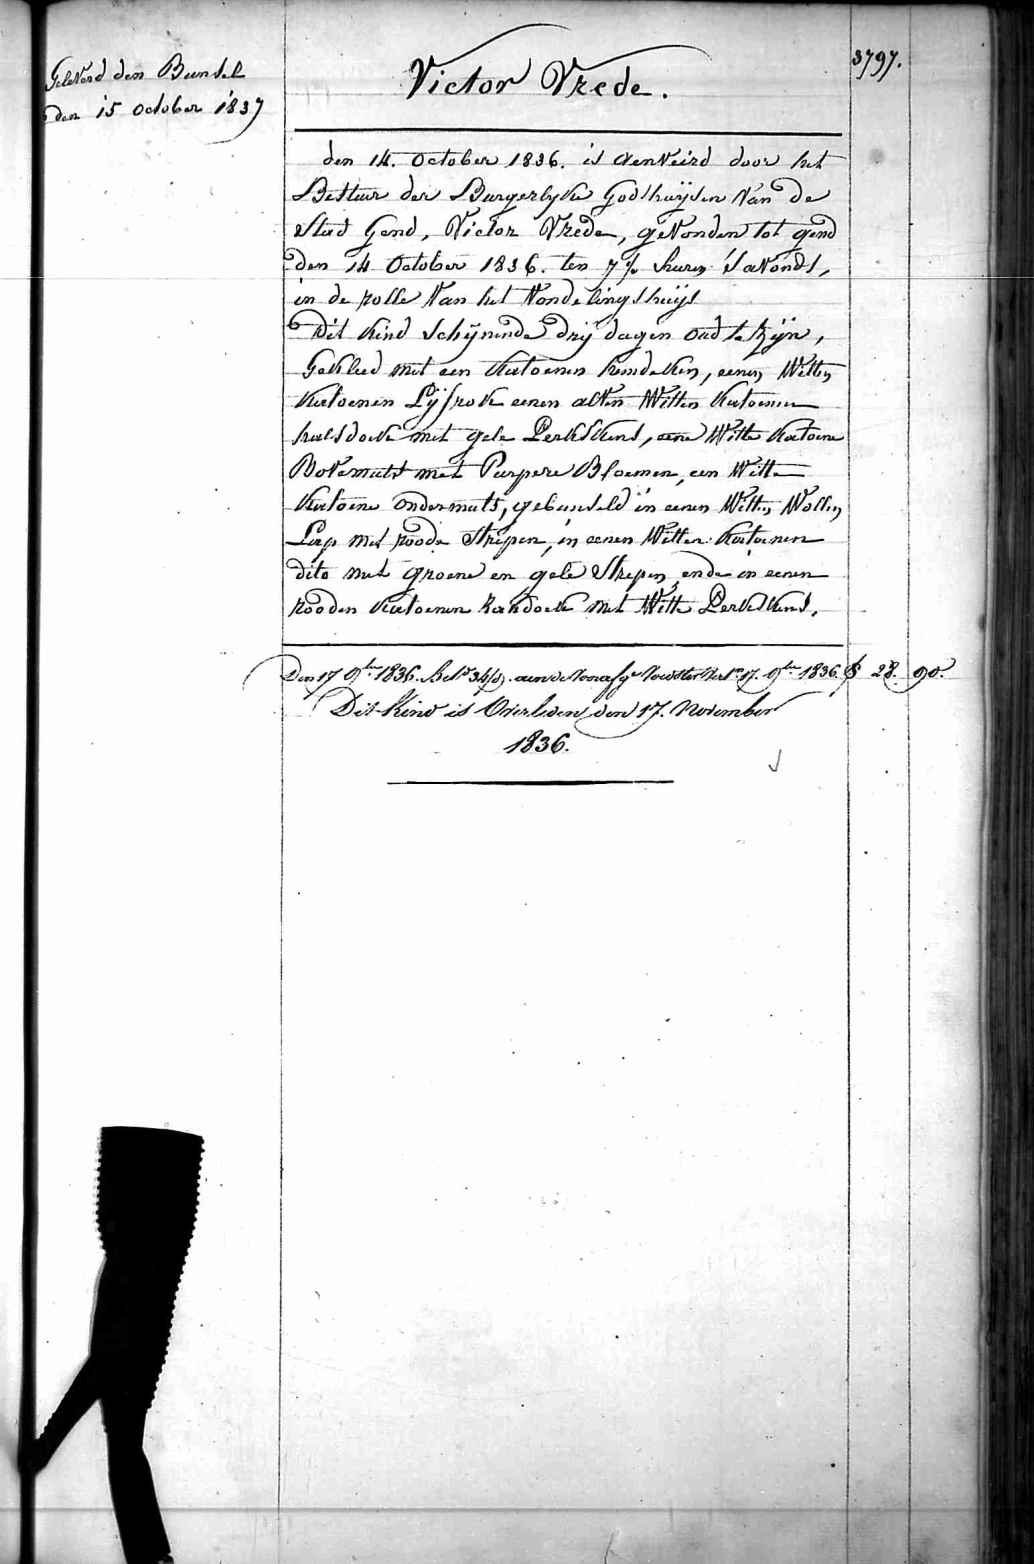 Geleverd den Bunsel
den 15 October 1837
3797.
Victor Vrede.
den 14. October 1836. is aenveird door het
Bestuur der Burgerlyke Godshuijsen van de
Stad Gend, Victor Vrede, gevonden tot gend
den 14 October 1836. ten 7½ huren 's avonds,
in de rolle van het Vondelingshuijs
Dit kind schijnende drij dagen oud te zijn,
Gekleed met een katoenen hemdeken, eenen Witten
Katoenen Lijfrok eenen alven Witten Katoenen
halsdoek met gele Perkskens, eene Witte Katoene
Bovemuts met Purpere Bloemen, een Witte
Katoene ondermuts, gebunseld in eenen Witten Wollen
Lap met roode Strepen, in eenen Witten Katoenen
dito met groene en gele Strepen, ende in eenen
rooden katoenen handoek met Witte Perkskens.
Den 17 9bre 1836. aen de 17. 9bre 1836. 28. 90.
Dit Kind is Overleden den 17. November
1836.